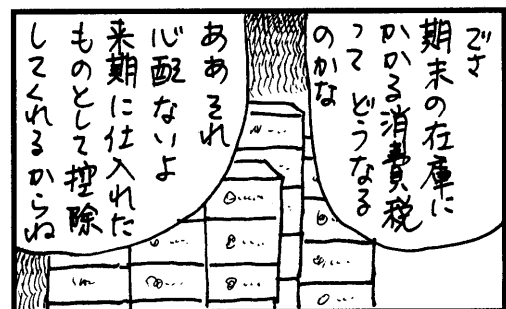 でさ
期末の在庫に
かかる消費税
って どうなる
のかな
ああそれ
心配ないよ
来期に仕入れた
ものとして控除
してくれるからね